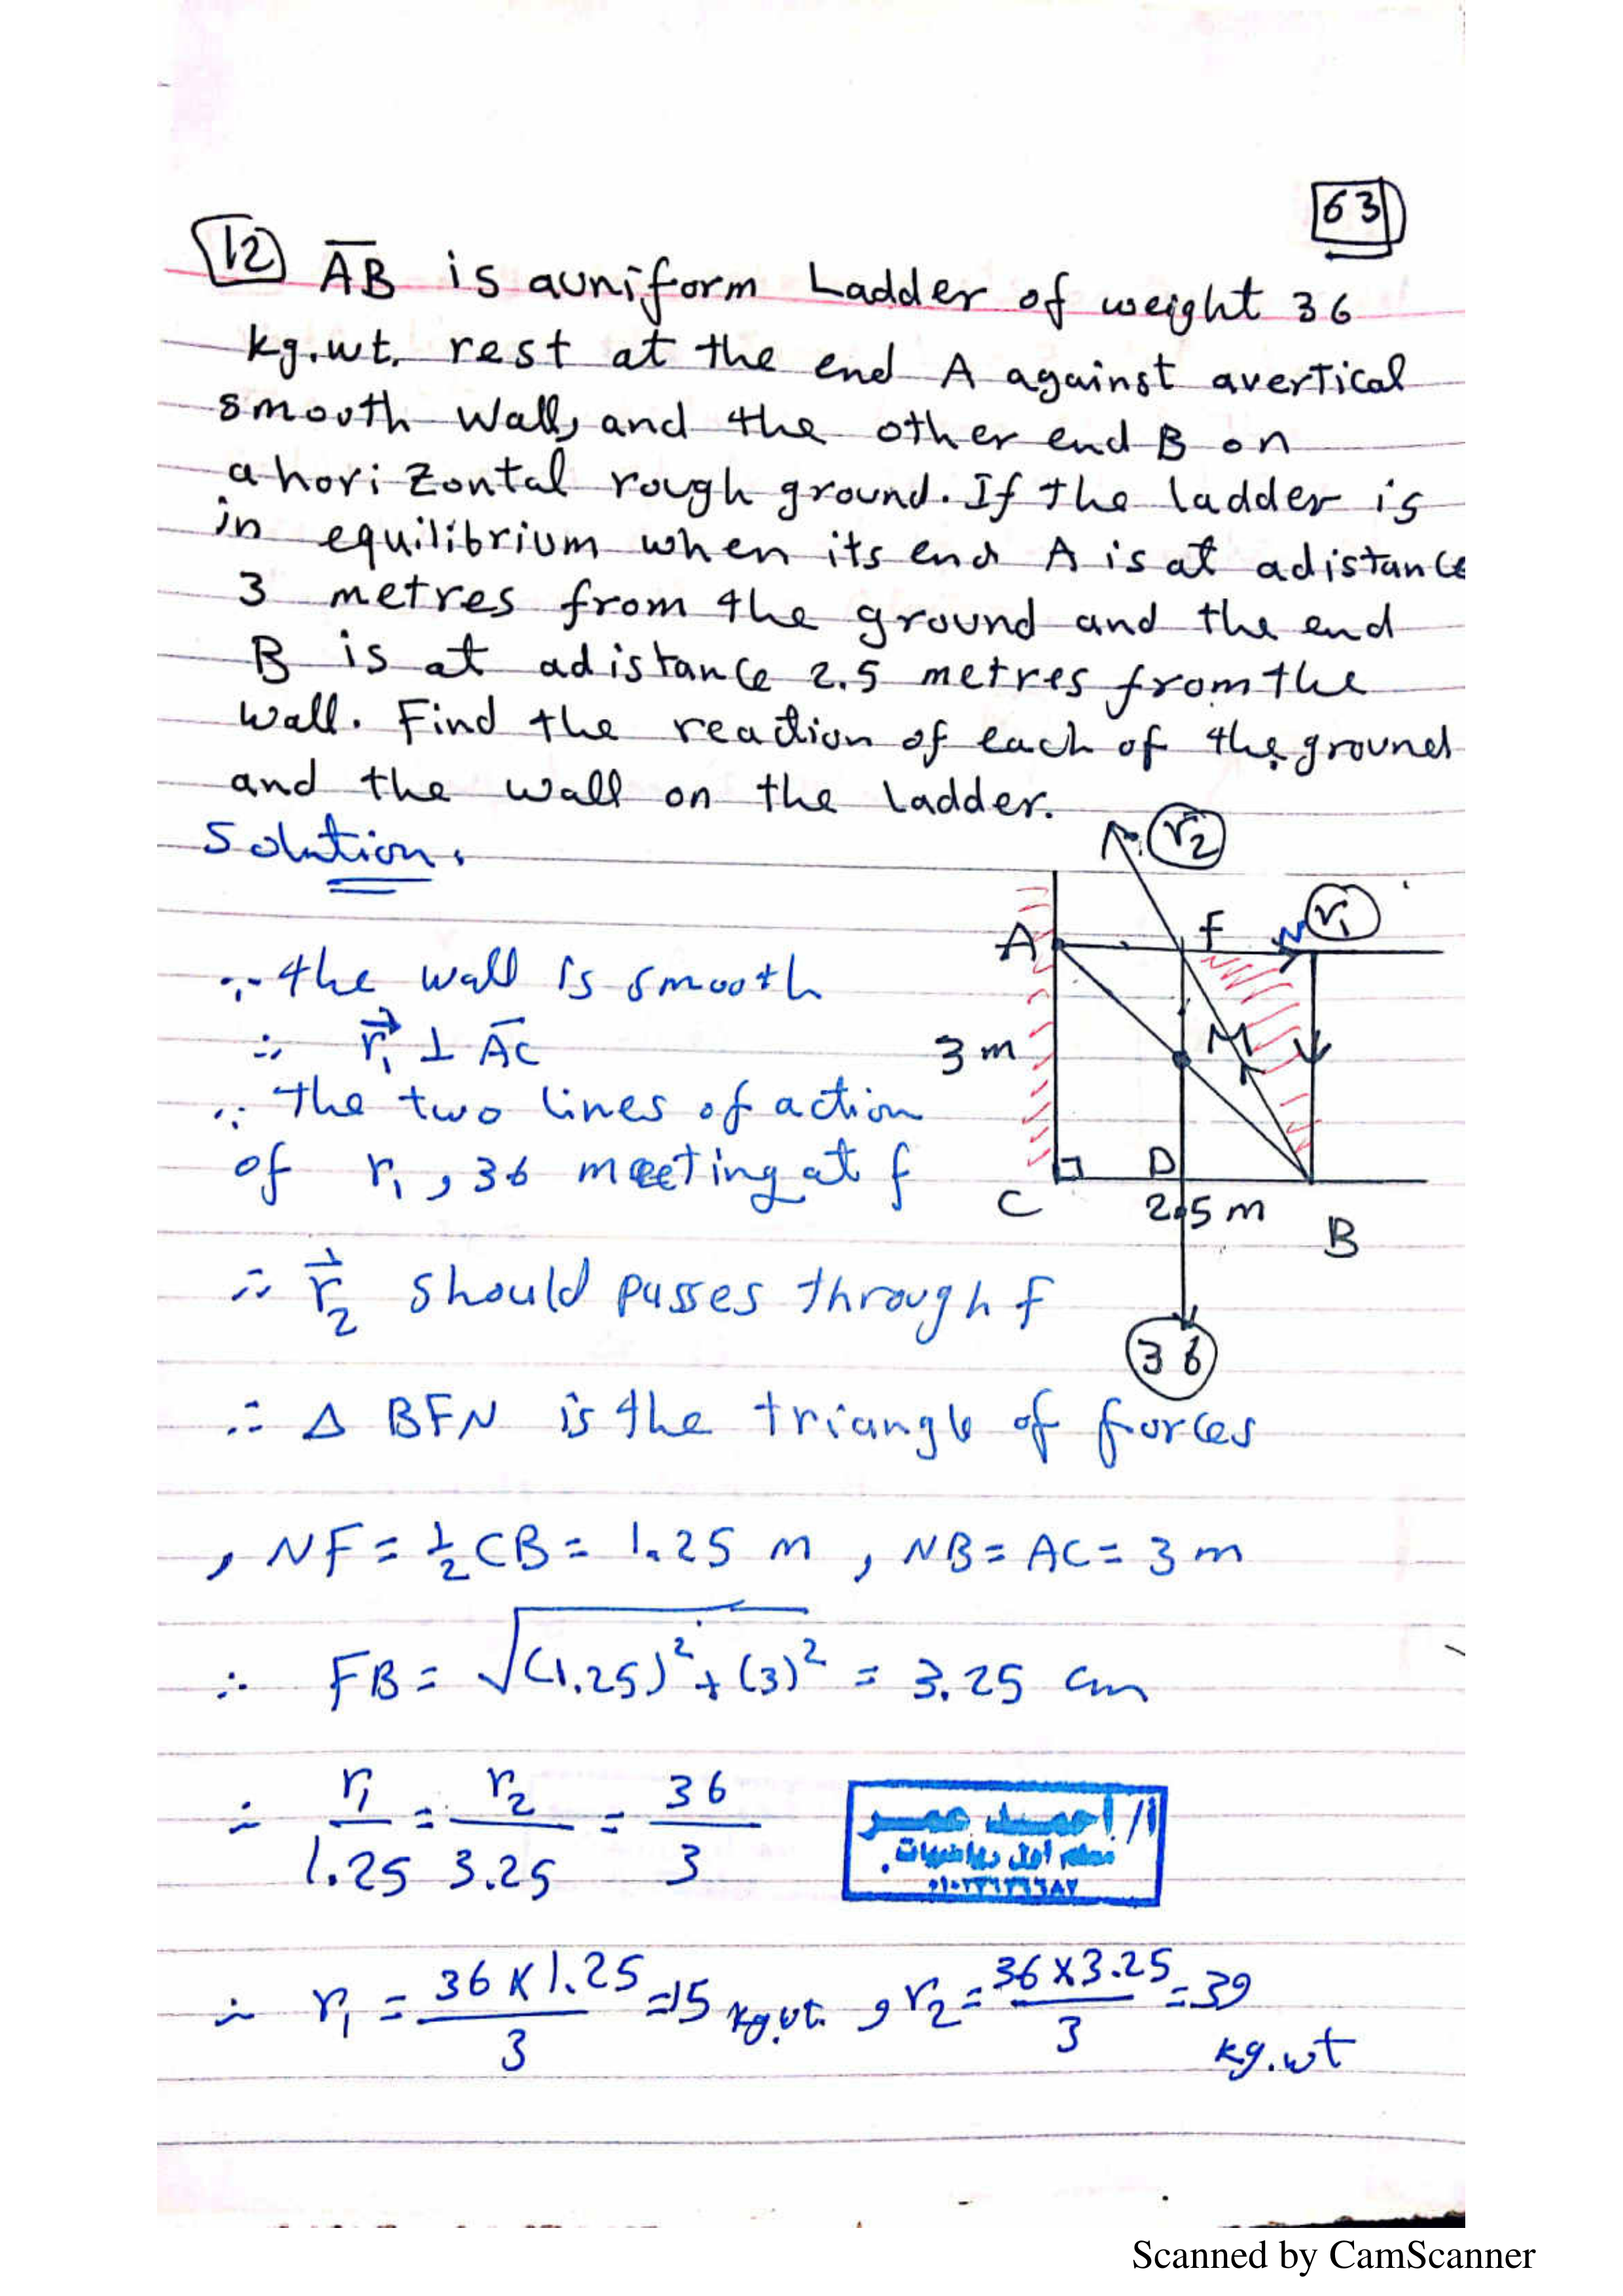 63
12 AB is auniform Ladder of weight 36
kg.wt. rest at the end A against avertical
smooth Wall, and the other end B on
ahorizontal rough ground. If the ladder is
in equilibrium when its end A is at adistance
3 metres from the ground and the end
B is at adistance 2.5 metres from the
wall. Find the reaction of each of the ground
and the wall on the ladder.
Solution.
r₂
A F N r₁
3 m M
C D B
2.5 m
36
∵ the wall is smooth
∴ r₁ ⊥ AC
∵ the two lines of action
of r₁, 36 meeting at f
∴ r₂ should passes through f
∴ Δ BFN is the triangle of forces
, NF = ½ CB = 1.25 m , NB = AC = 3 m
∴ FB = √(1.25)² + (3)² = 3.25 cm
∴ r₁/1.25 = r₂/3.25 = 36/3
أ/ أحمد عمر
معلم أول رياضيات
∴ r₁ = 36 × 1.25/3 = 15 kg.wt. , r₂ = 36 × 3.25/3 = 39
kg.wt
Scanned by CamScanner